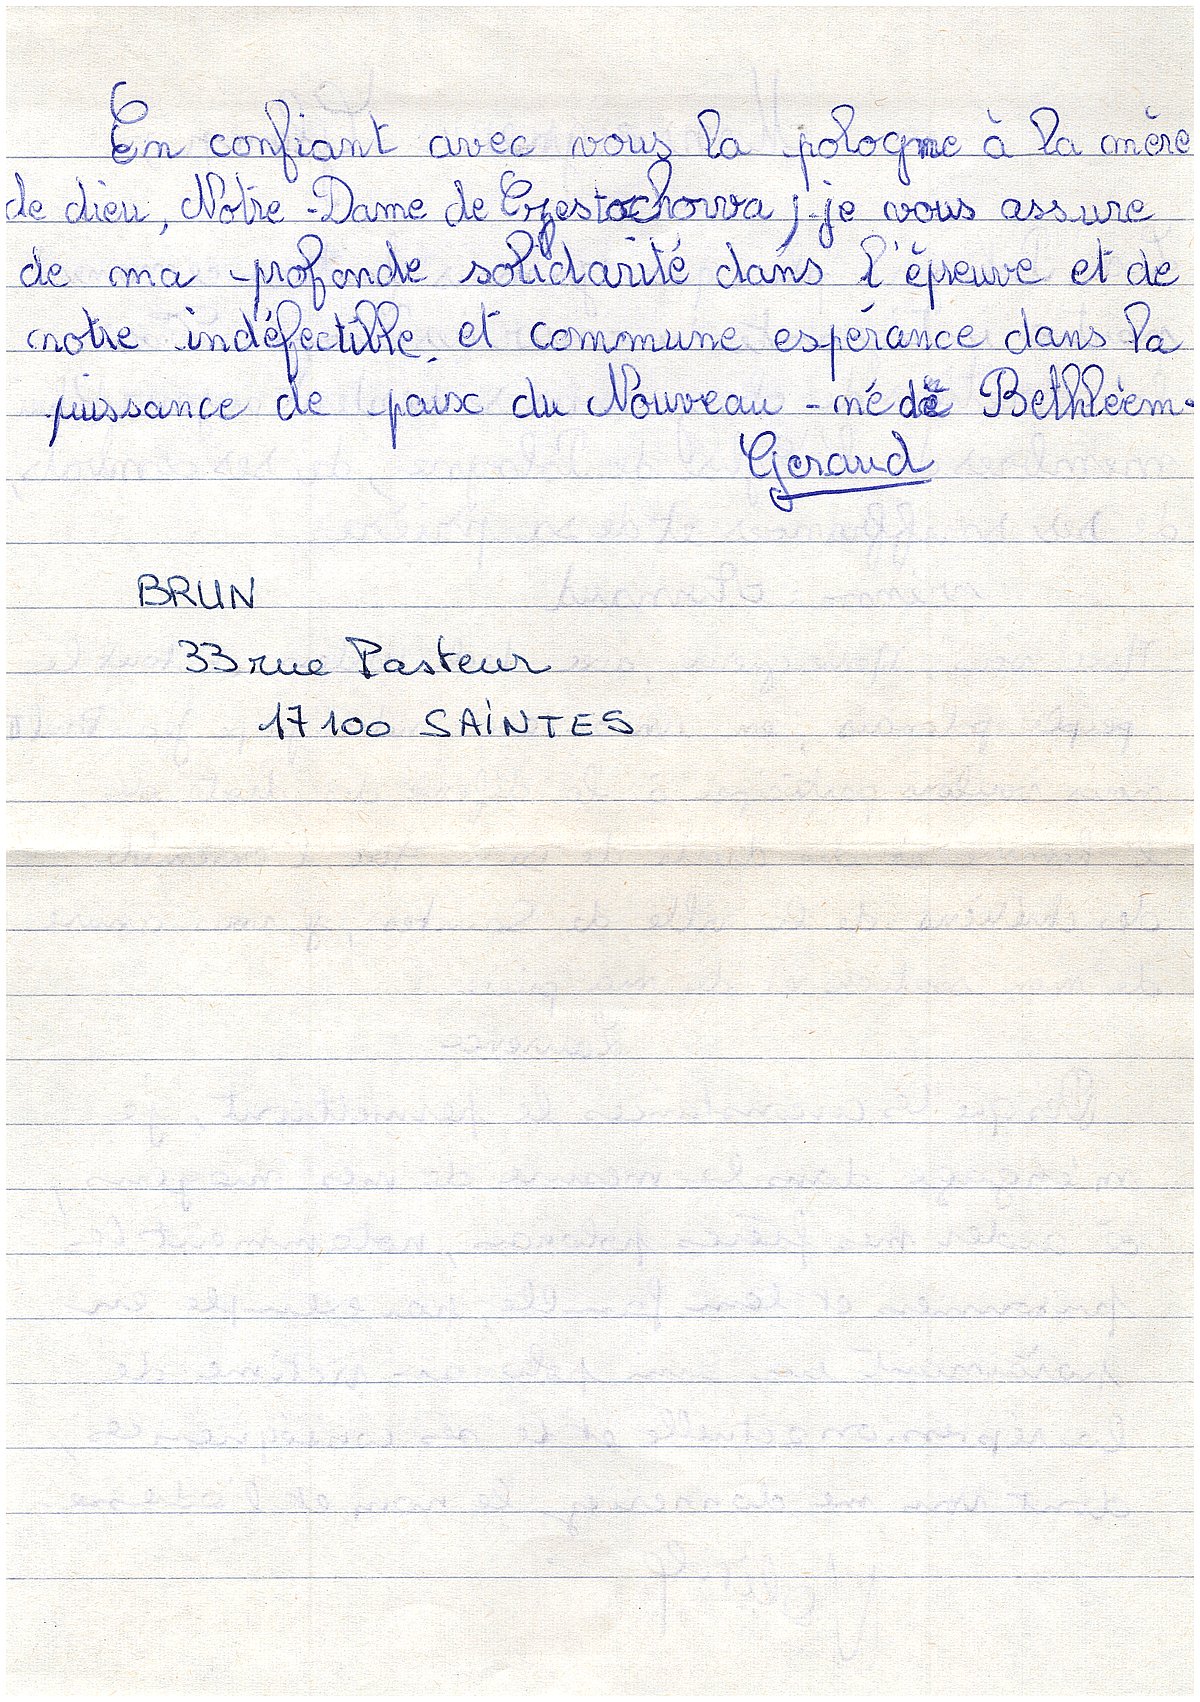 En confiant avec vous la pologne à la mère
de dieu, Notre-Dame de Czestochowa, je vous assure
de ma profonde solidarité dans l'épreuve et de
notre indéfectible et commune espérance dans la
puissance de paix du Nouveau-né de Bethléem.
Geraud
BRUN
33 rue Pasteur
17100 SAINTES